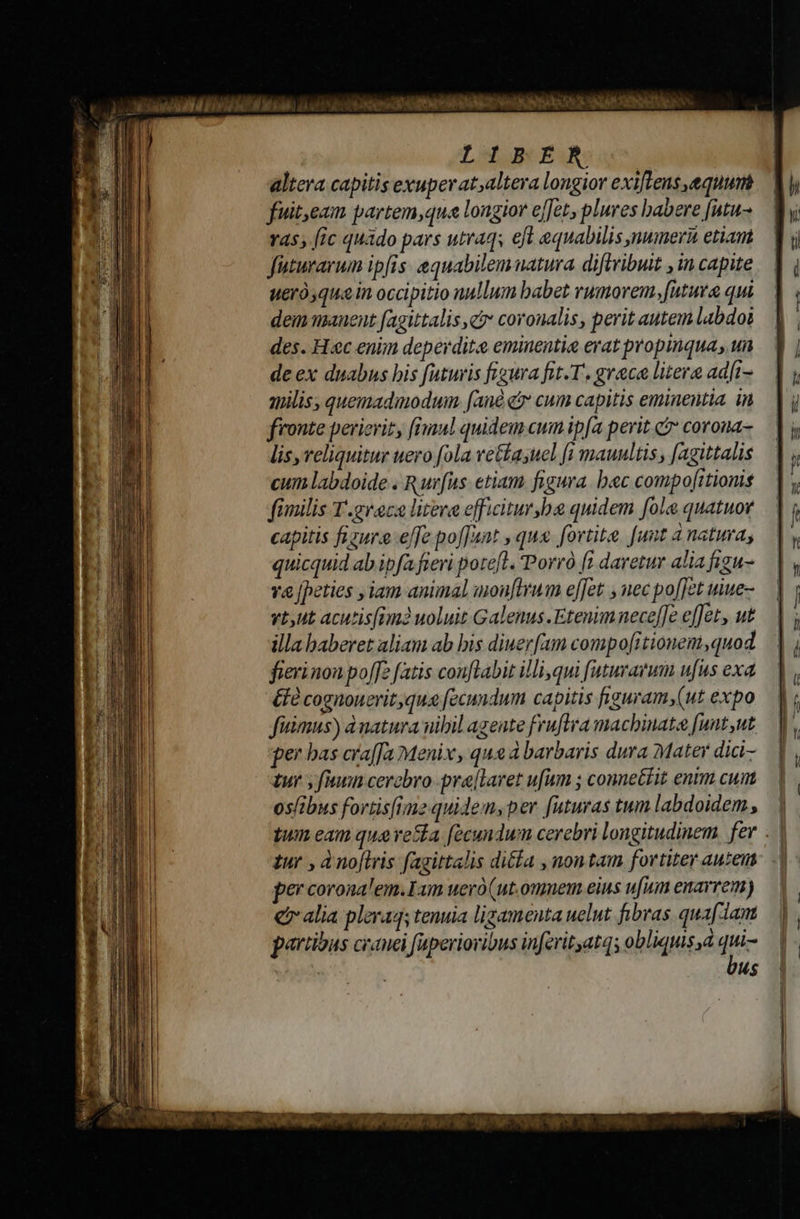 LIBER
altera capitis exuperat,altera longior exiſtens,æquum
fuit,eam partem,quæ longior eſſet, plures habere ſutu-
ras, ſic quãdo pars utraq; eſt æquabilis,numerũ etiam
ſuturarum ipſis æquabilem natura diſtribuit , in capite
uerò,quæ in occipitio nullum habet tumorem,ſuturæ qui
dem manent ſagittalis,& coronalis, perit autem labdoi
des. Hæc enim deperditæ eminentiæ erat propinqua, un
de ex duabus his ſuturis figura fit.T. græcæ literæ adſi-
milis, quemadmodum ſanè & cum capitis eminentia in
fronte perierit, ſimul quidem cum ipſa perit & corona-
lis, reliquitur uero ſola recta,uel ſi mauultis, ſagittalis
cum labdoide . Rurſus etiam figura hæc compoſitionis
ſimilis T.græcæ literæ efficitur,hæ quidem ſolæ quatuor
capitis figuræ eſſe poſſunt , quæ fortitæ ſunt à natura,
quicquid ab ipſa fieri poteſt. Porrò ſi daretur alia figu-
ræ ſpeties , iam animal monſtrum eſſet , nec poſſet uiue-
re,ut acutiſſimè uoluit Galenus.Etenim neceſſe eſſet, ut
illa haberet aliam ab his diuerſam compoſitionem,quod
fieri non poſſe ſatis conſtabit illi,qui ſuturarum uſus exa
ctè cognouerit,quæ ſecundum capitis figuram,(ut expo
ſuimus) à natura nihil agente fruſtra machinatæ ſunt,ut
per has craſſa Menix, quæ à barbaris dura Mater dici-
tur , ſuum cerebro præſtaret uſum ; connectit enim cum
oſſibus fortiſſimæ quidem, per ſuturas tum labdoidem ,
tum eam quæ recta ſecundum cerebri longitudinem fer .
tur , à noſtris ſagittalis dicta , non tam fortiter autem
per coronalem.Iam uerò(ut omnem eius uſum enarrem)
& alia pleraq; tenuia ligamenta uelut fibras quaſdam
partibus cranei ſuperioribus inſerit,atq; obliquis,à qui-
bus